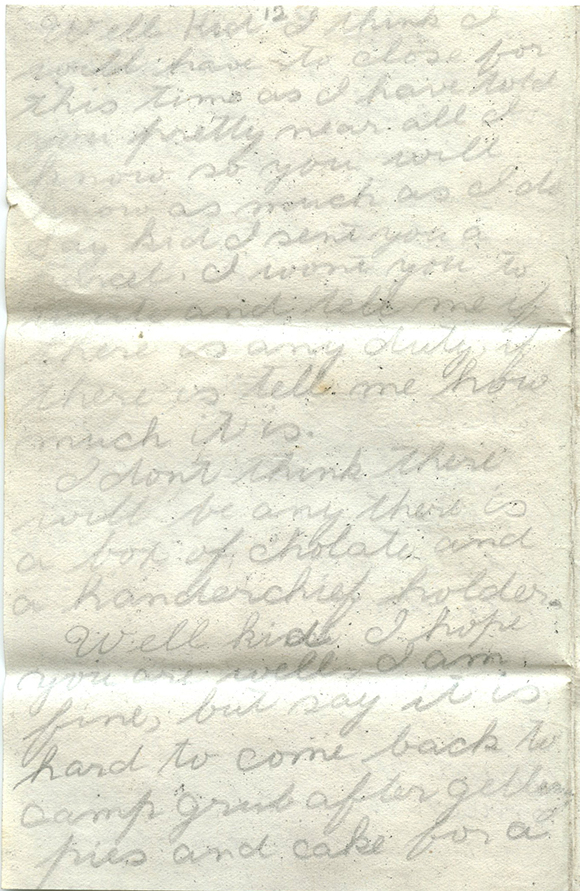 12
Well kid I think I
will have to close for
this time as I have told
you pretty near all I
know so you will
know as much as I do
Say kid I sent you a
I wont you to
and tell me if
there is any duty if
there is tell me how
much it is.
I dont think there
will be any there is
a box of cholate and
a handerchief holder.
Well kid I hope
you are well I am
fine, but say it is
hard to come back to
camp grub after getting
pies and cake for a